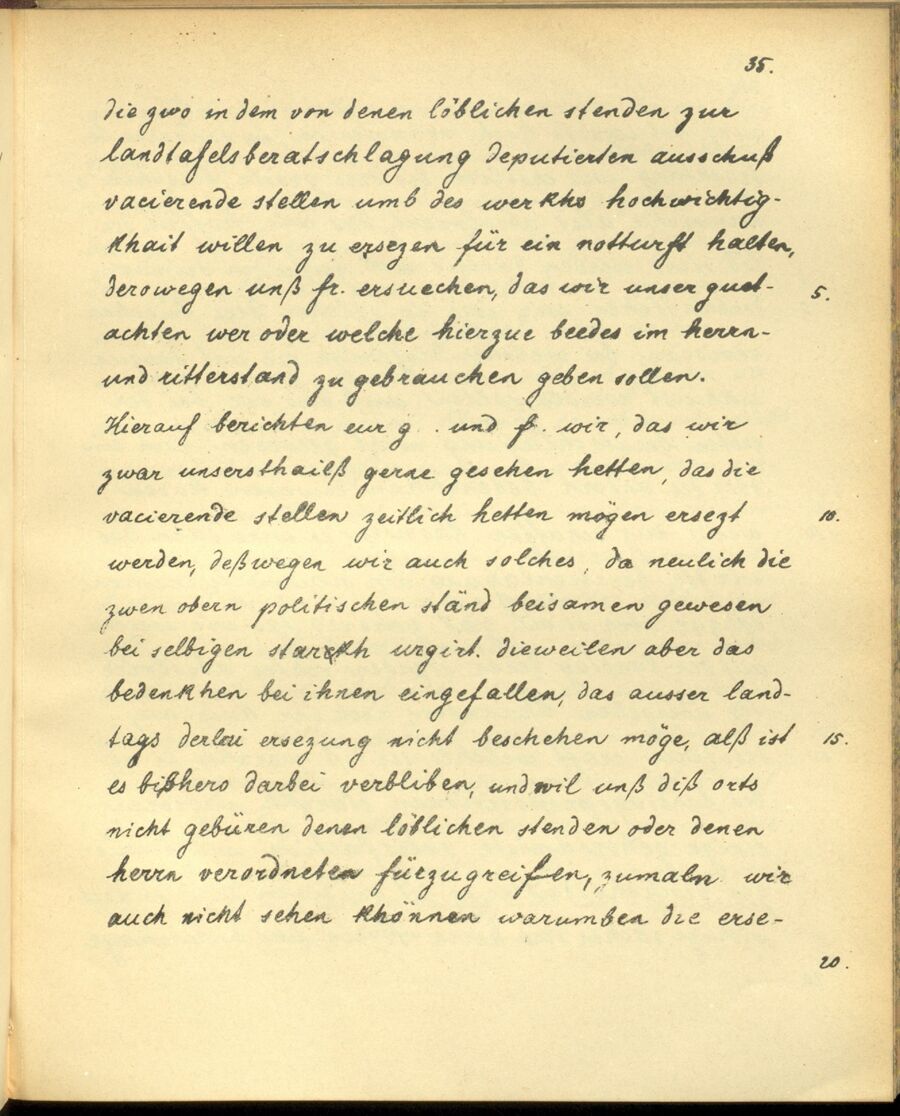 35.
die zwo in dem von denen löblichen stenden zur
landtafelsberatschlagung deputierten ausschuß
vacierende stellen umb des werkhs hochwichtig-
khait willen zu ersezen für ein notturft halten,
derowegen unß fr. ersuechen, das wir unser guet- 5.
achten wer oder welche hierzue beedes im herrn-
und ritterstand zu gebrauchen geben sollen.
Hierauf berichten eur g. und f. wir, das wir
zwar unsersthailß gerne gesehen hetten, das die
vacierende stellen zeitlich hetten mögen ersezt 10.
werden, deßwegen wir auch solches, da neulich die
zwen obern politischen ständ beisamen gewesen
bei selbigen starkh urgirt. dieweilen aber das
bedenkhen bei ihnen eingefallen, das ausser land-
tags derlei ersezung nicht beschehen möge, alß ist 15.
es bißhero darbei verbliben, und wil unß diß orts
nicht gebüren denen löblichen stenden oder denen
herrn verordneten fürzugreifen, zumaln wir
auch nicht sehen khönnen warumben die erse-
20.